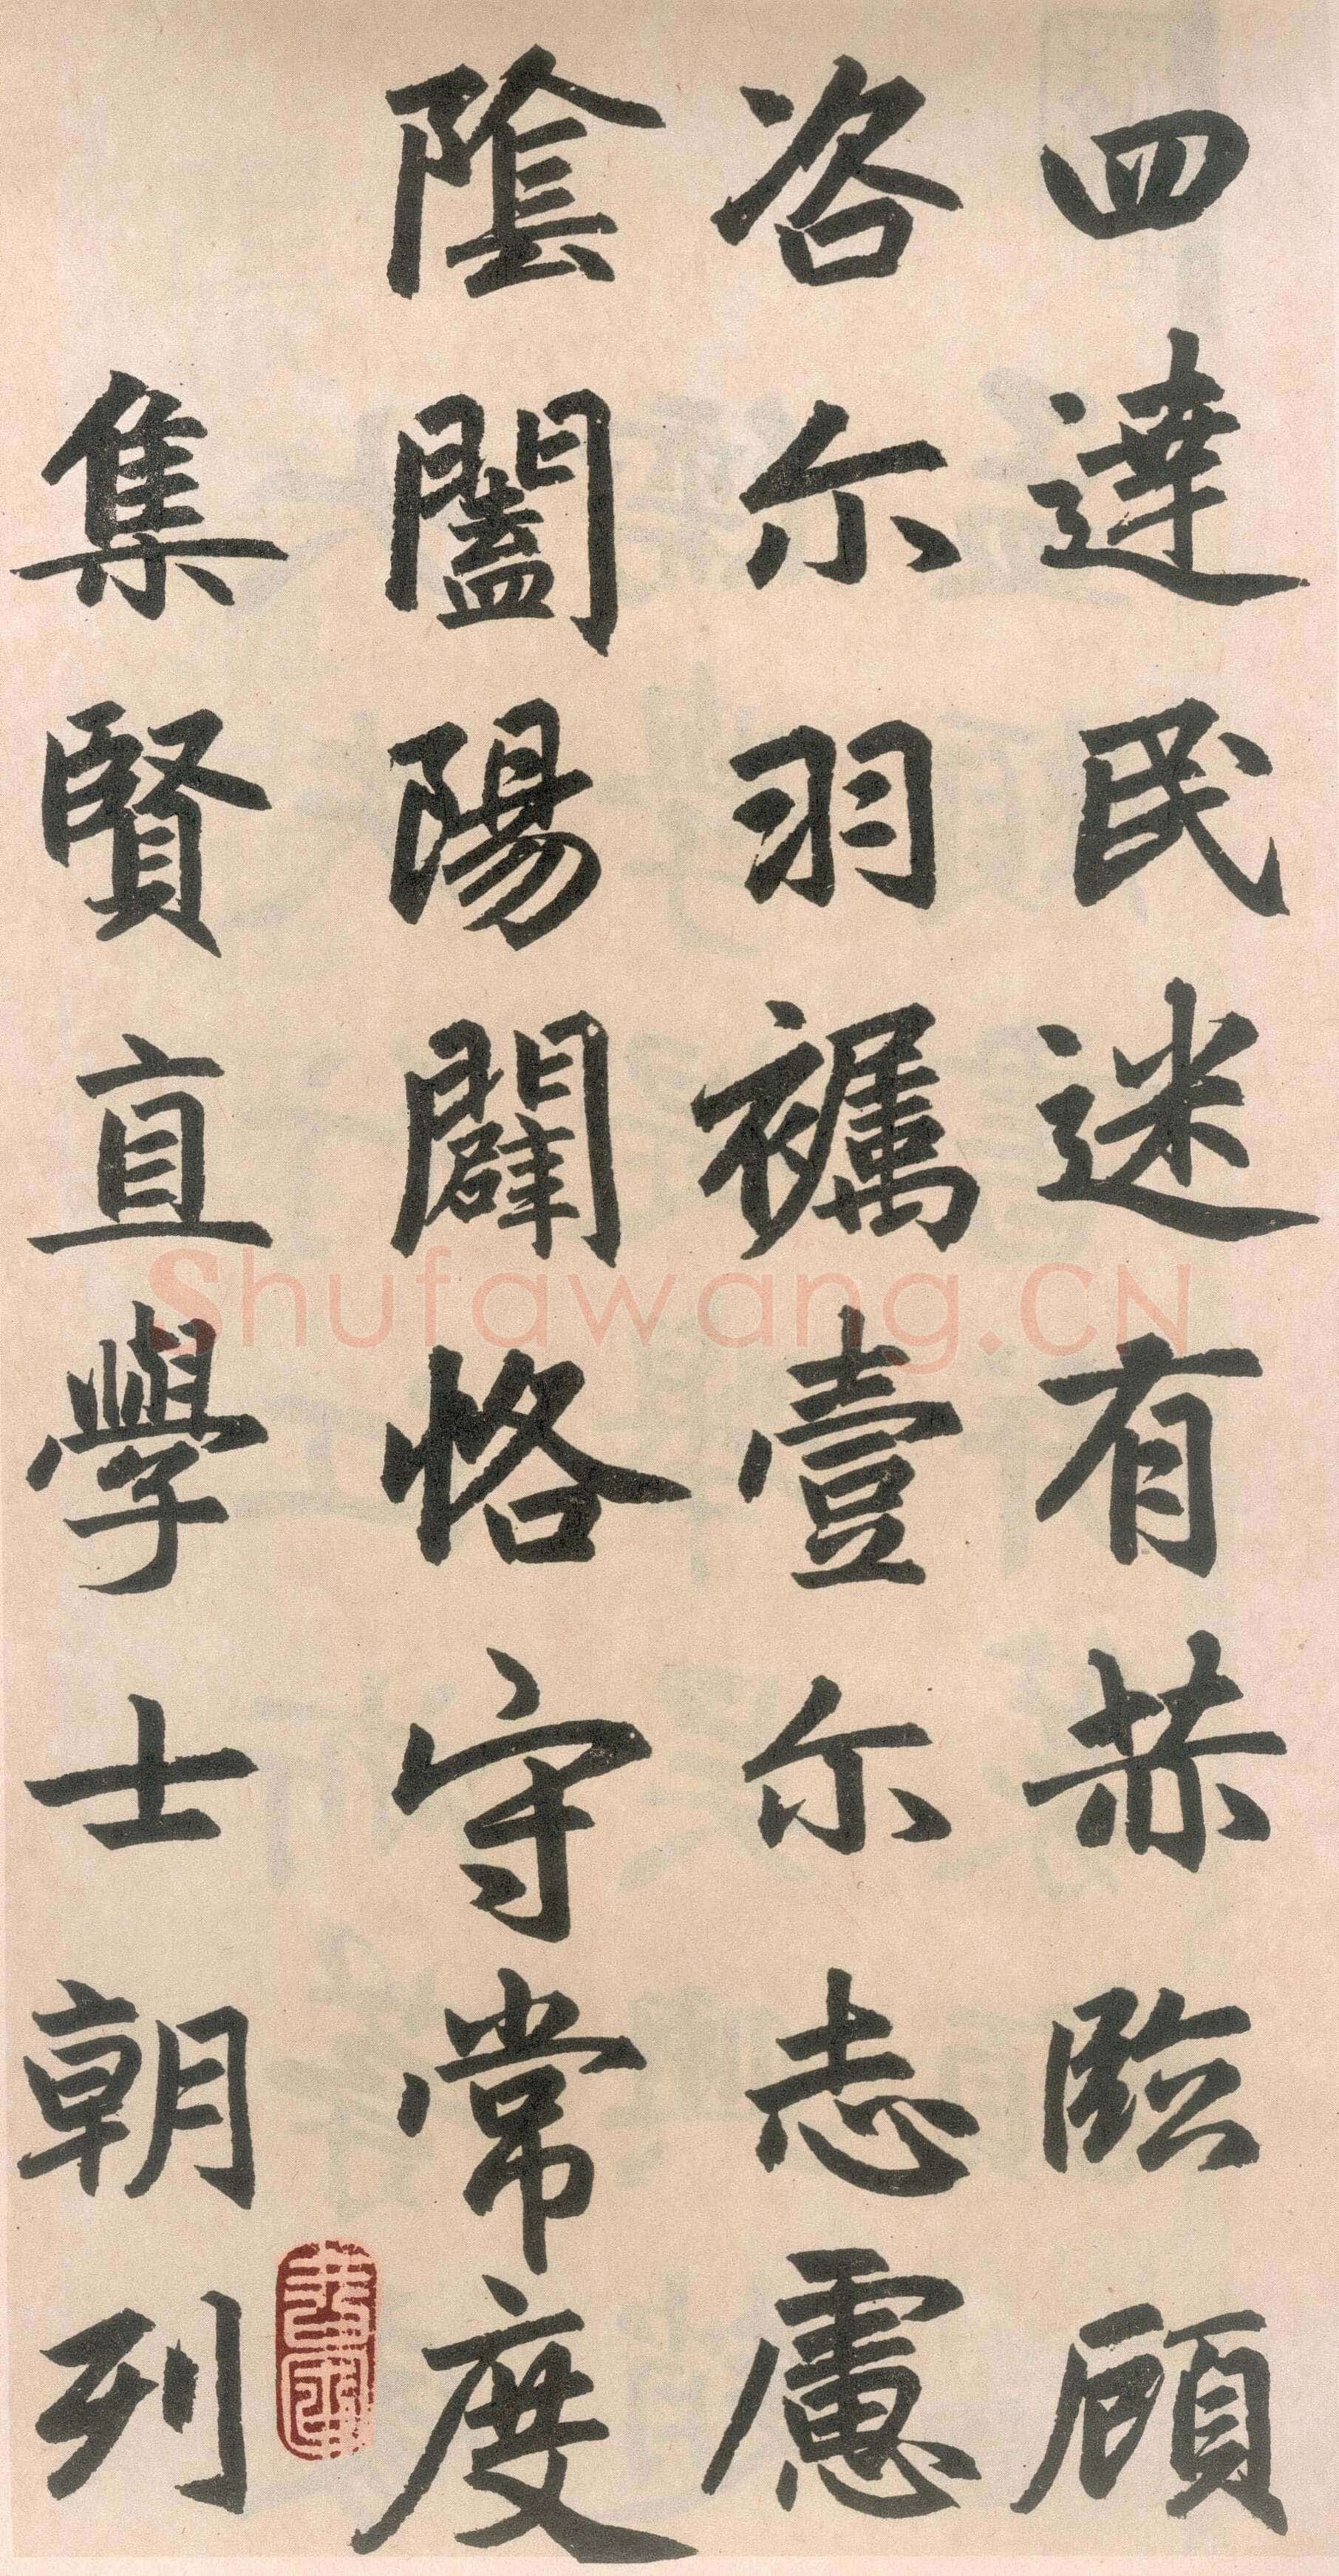 四達民迷有赫臨顧
咨尔羽襹壹尔志慮
陰闔陽闢恪守常度
集賢直學士朝列
Shufawang.CN